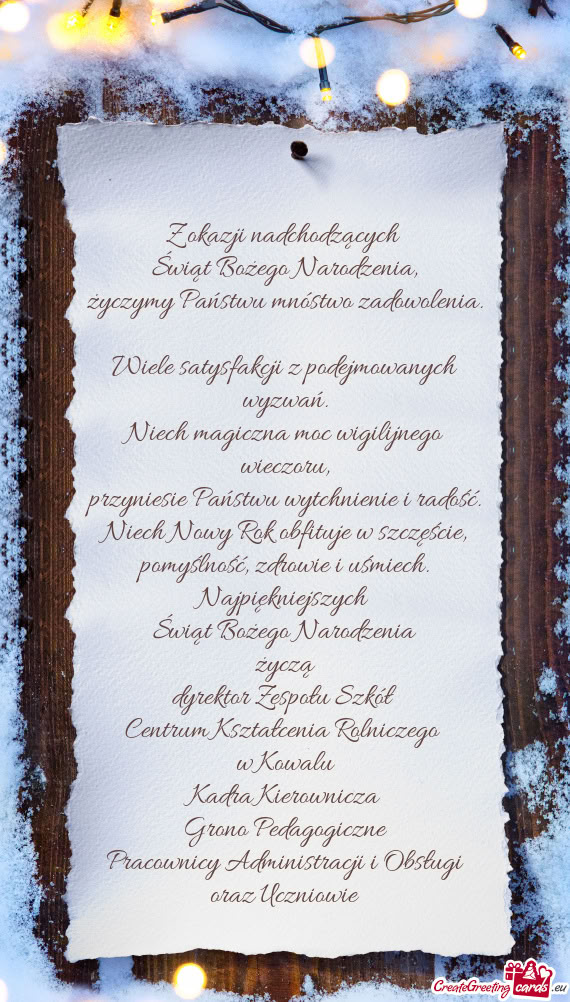 Z okazji nadchodzących
Świąt Bożego Narodzenia,
życzymy Państwu mnóstwo zadowolenia.
Wiele satysfakcji z podejmowanych
wyzwań.
Niech magiczna moc wigilijnego
wieczoru,
przyniesie Państwu wytchnienie i radość.
Niech Nowy Rok obfituje w szczęście,
pomyślność, zdrowie i uśmiech.
Najpiękniejszych
Świąt Bożego Narodzenia
życzą
dyrektor Zespołu Szkół
Centrum Kształcenia Rolniczego
w Kowalu
Kadra Kierownicza
Grono Pedagogiczne
Pracownicy Administracji i Obsługi
oraz Uczniowie
CreateGreetingcards.eu